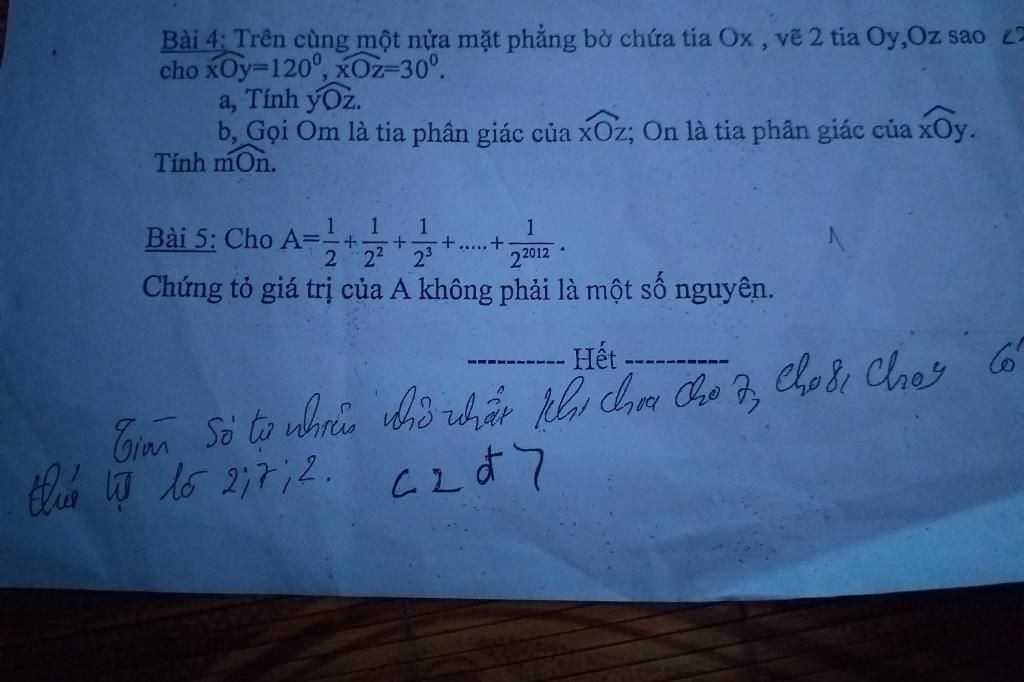 Bài 4: Trên cùng một nửa mặt phẳng bờ chứa tia Ox , vẽ 2 tia Oy,Oz sao
cho xOy=120⁰, xOz=30⁰.
a, Tính yOz.
b, Gọi Om là tia phân giác của xOz; On là tia phân giác của xOy.
Tính mOn.
Bài 5: Cho A=1/2+1/2²+1/2³+.....+1/2²⁰¹².
Chứng tỏ giá trị của A không phải là một số nguyên.
---------- Hết ----------
Tìm số tự nhiên nhỏ nhất khi chia cho 7, cho 8, cho 9 có
thứ tự là 2;7;2.